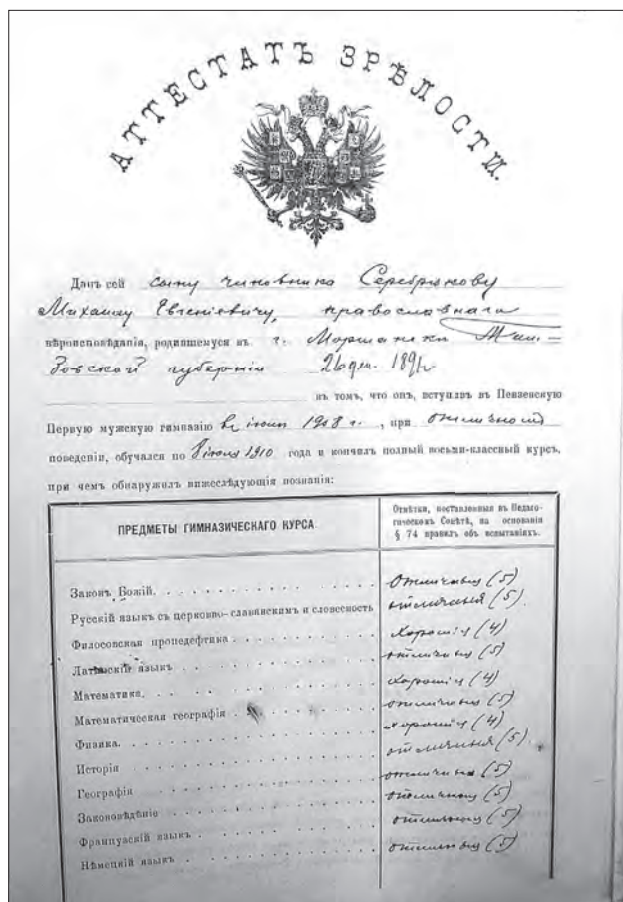 АТТЕСТАТЪ ЗРѢЛОСТИ.
Данъ сей сыну чиновника Серебрякову
Михаилу Евгеніевичу, православнаго
вѣроисповѣданія, родившемуся въ г. Моршанскѣ Там-
бовской губерніи 26 дек. 1891 г.
въ томъ, что онъ, вступивъ въ Пензенскую
Первую мужскую гимназію въ 1908 г., при отличномъ
поведеніи, обучался по 1910 года и кончилъ полный восьми-классный курсъ,
при чемъ обнаружилъ нижеслѣдующія познанія:
ПРЕДМЕТЫ ГИМНАЗИЧЕСКАГО КУРСА
Отмѣтки, поставленныя въ Педаго-
гическомъ Совѣтѣ, на основаніи
§ 74 правилъ объ испытаніяхъ.
Законъ Божій. отличныя (5)
Русскій языкъ съ церковно-славянскимъ и словесность отличныя (5)
Философская пропедевтика хорошія (4)
Латинскій языкъ отличныя (5)
Математика. хорошія (4)
Математическая географія отличныя (5)
Физика. хорошія (4)
Исторія отличныя (5).
Географія отличныя (5)
Законовѣдѣніе отличныя (5)
Французскій языкъ отличныя (5)
Нѣмецкій языкъ отличныя (5)